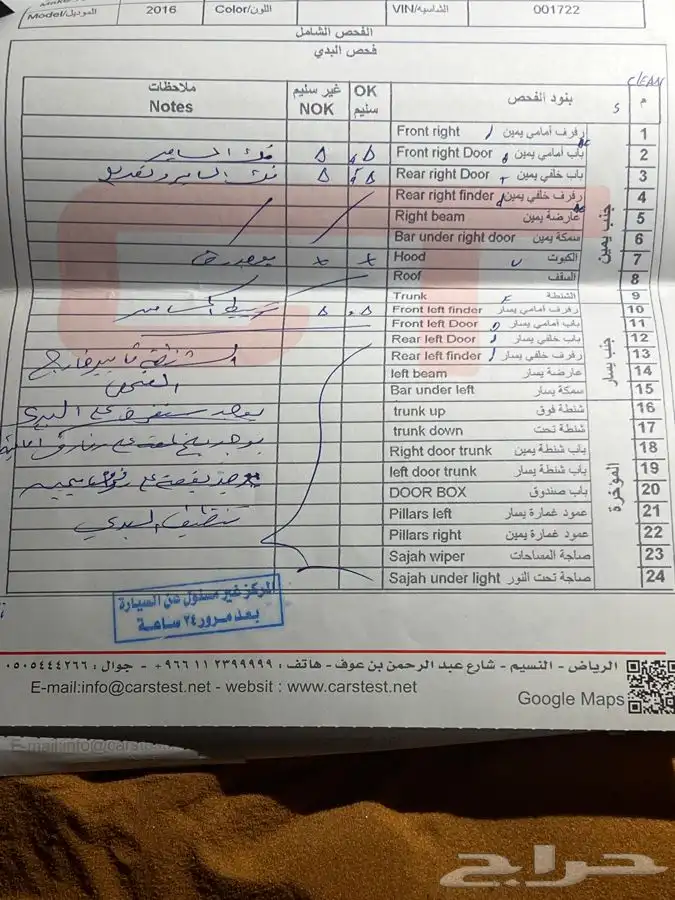 Model/الموديل 2016 Color/اللون VIN/الشاسيه 001722
الفحص الشامل
فحص البدي
CLEAN
ملاحظات Notes غير سليم NOK OK سليم بنود الفحص م
جنب يمين
Front right رفرف أمامي يمين 1
فك المسامير Front right Door باب أمامي يمين 2
فك المسامير وتعديل Rear right Door باب خلفي يمين 3
Rear right finder رفرف خلفي يمين 4
Right beam عارضة يمين 5
Bar under right door سمكة يمين 6
Hood الكبوت 7
Roof السقف 8
Trunk الشنطة 9
جنب يسار
Front left finder رفرف أمامي يسار 10
Front left Door باب أمامي يسار 11
Rear left Door باب خلفي يسار 12
Rear left finder رفرف خلفي يسار 13
left beam عارضة يسار 14
Bar under left سمكة يسار 15
المؤخرة
trunk up شنطة فوق 16
trunk down شنطة تحت 17
Right door trunk باب شنطة يمين 18
left door trunk باب شنطة يسار 19
DOOR BOX باب صندوق 20
Pillars left عمود غمارة يسار 21
Pillars right عمود غمارة يمين 22
Sajah wiper صاجة المساحات 23
Sajah under light صاجة تحت النور 24
المركز غير مسئول عن السيارة
بعد مرور ٢٤ ساعة
الرياض - النسيم - شارع عبد الرحمن بن عوف - هاتف : ٢٣٩٩٩٩٩ ١١ ٩٦٦+ - جوال : ٠٥٠٥٤٤٤٢٦٦
E-mail:info@carstest.net - websit : www.carstest.net
Google Maps
حراج